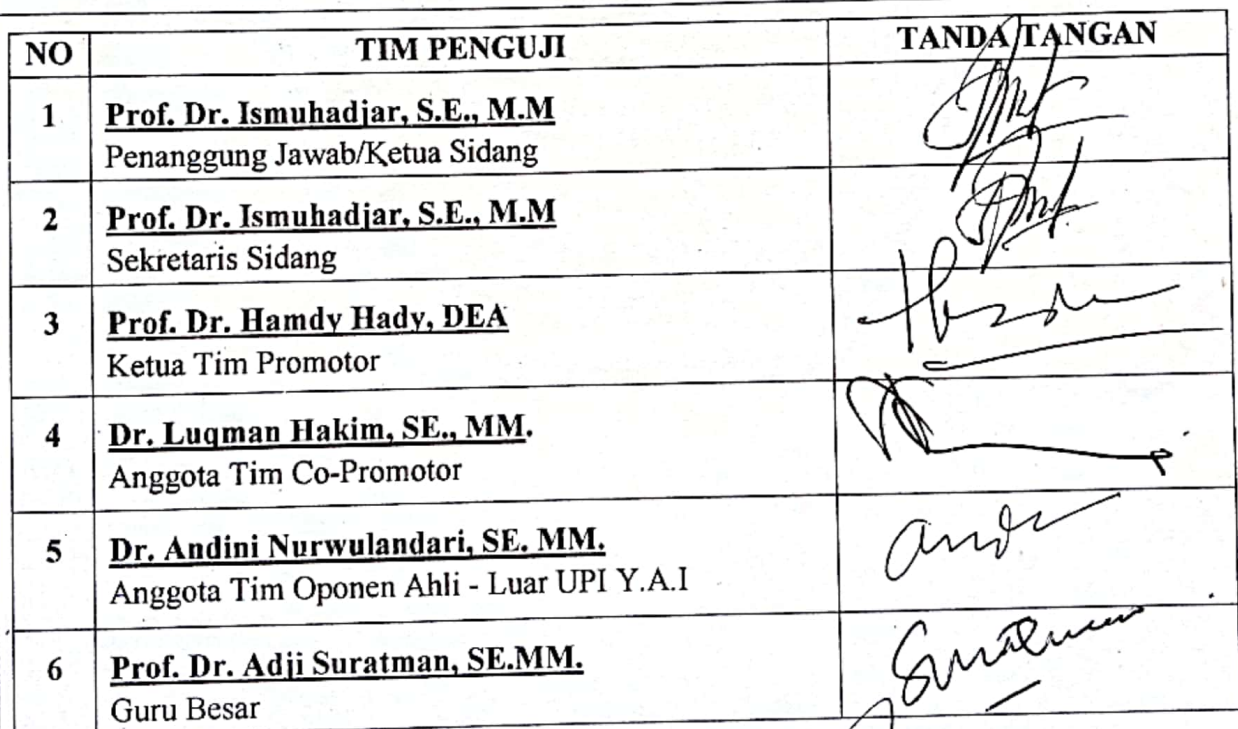 NO TIM PENGUJI TANDA TANGAN
1 Prof. Dr. Ismuhadjar, S.E., M.M
Penanggung Jawab/Ketua Sidang
2 Prof. Dr. Ismuhadjar, S.E., M.M
Sekretaris Sidang
3 Prof. Dr. Hamdy Hady, DEA
Ketua Tim Promotor
4 Dr. Luqman Hakim, SE., MM.
Anggota Tim Co-Promotor
5 Dr. Andini Nurwulandari, SE. MM.
Anggota Tim Oponen Ahli - Luar UPI Y.A.I
6 Prof. Dr. Adji Suratman, SE.MM.
Guru Besar